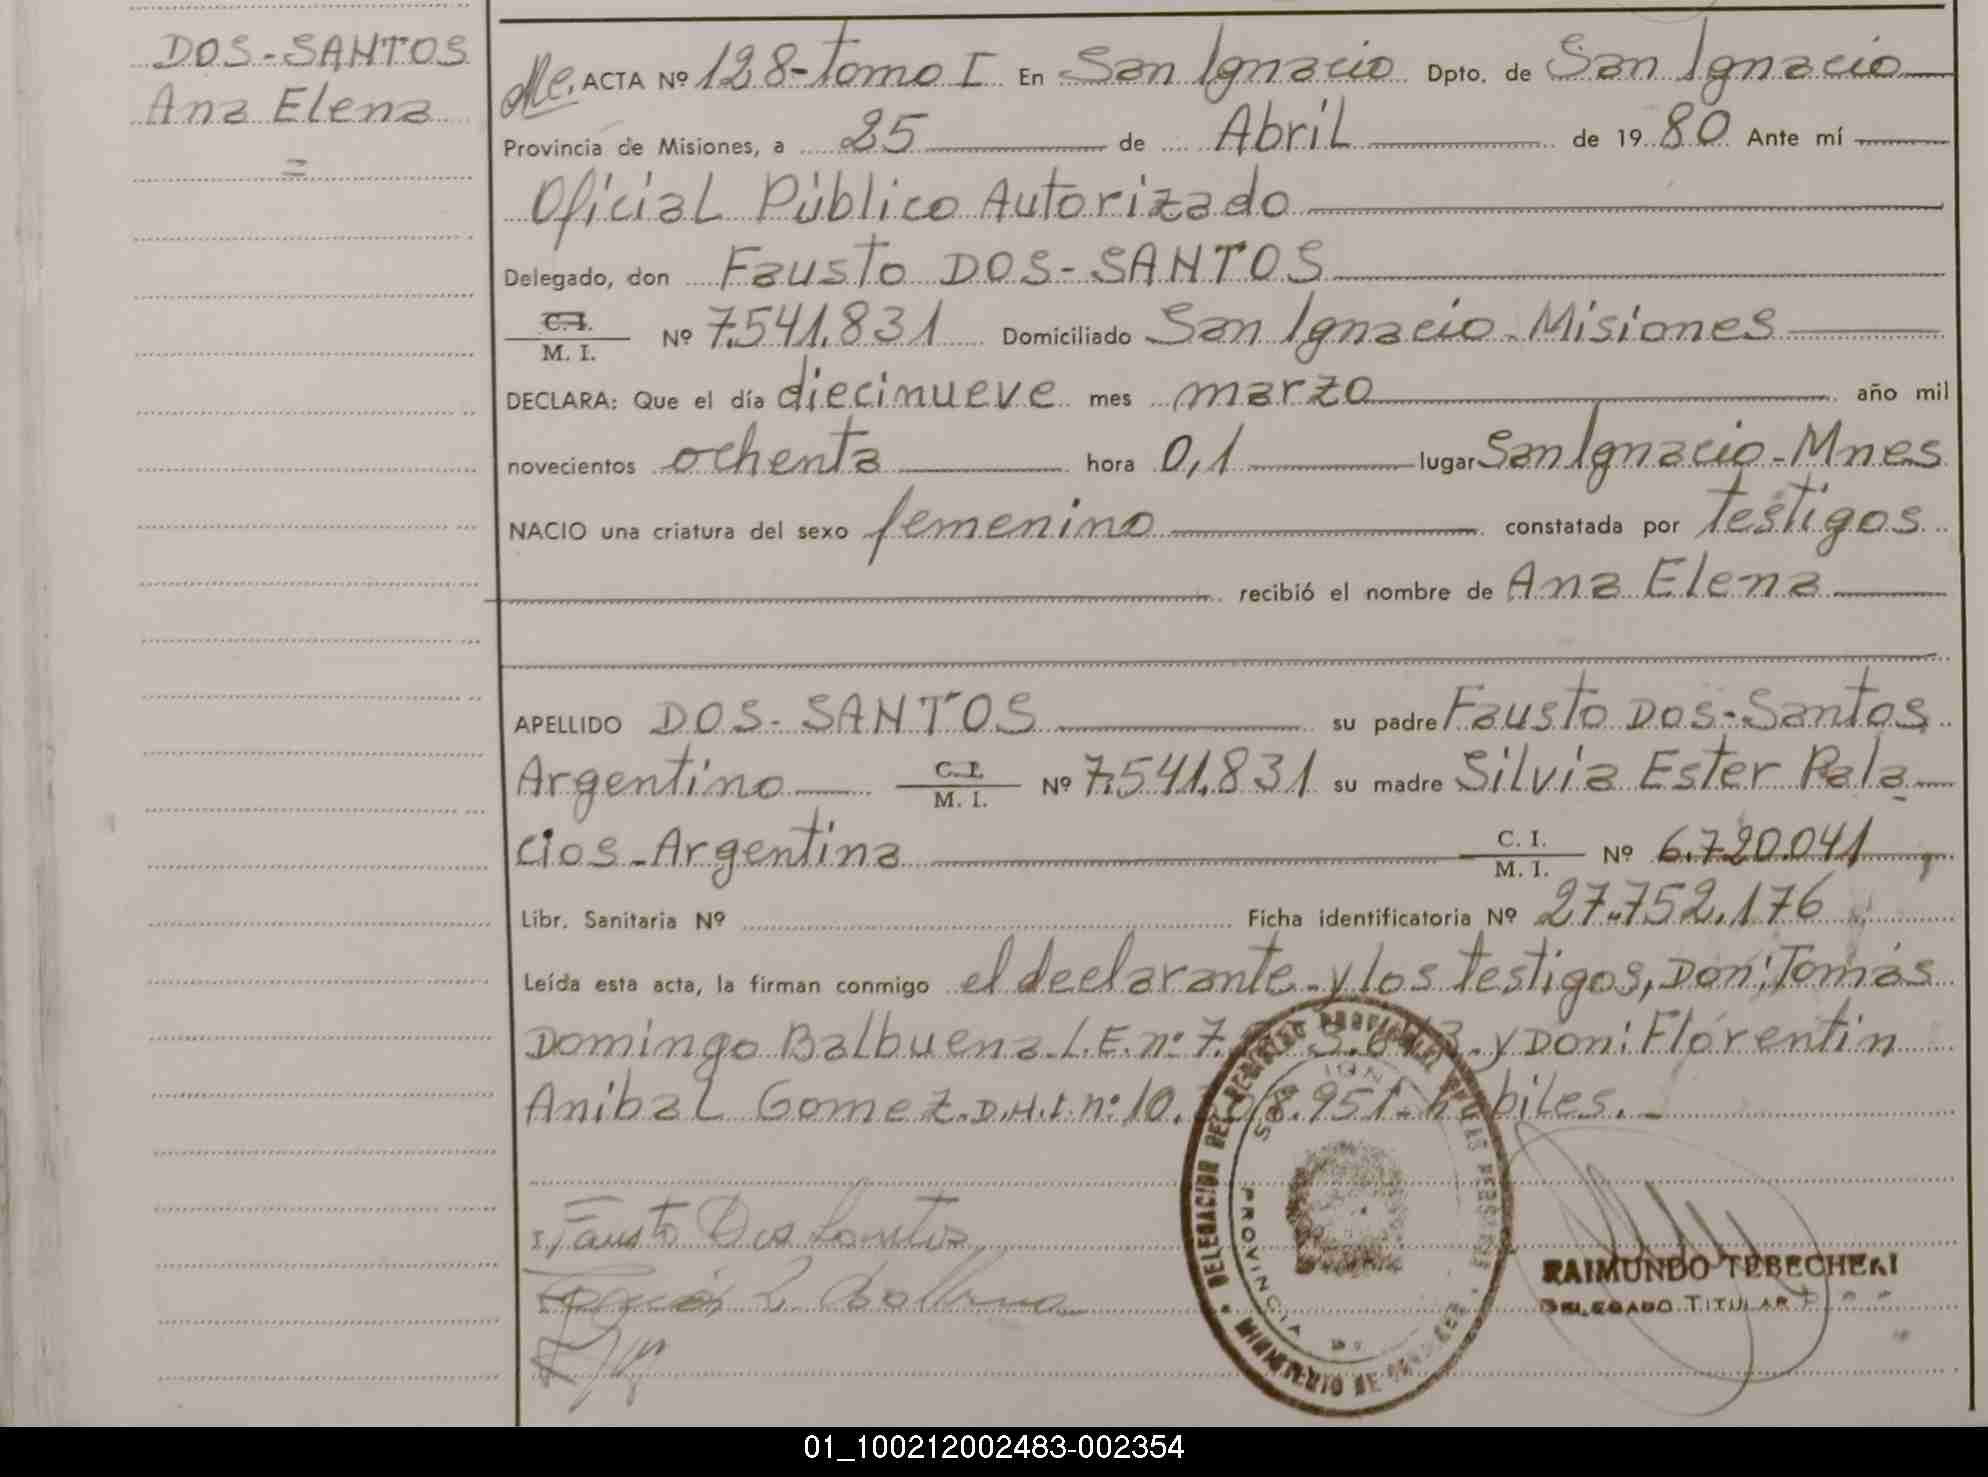 DOS-SANTOS
Ana Elena
=
ACTA Nº 128-Tomo I En San Ignacio Dpto. de San Ignacio
Provincia de Misiones, a 25 de Abril de 19 80 Ante mí
Oficial Público Autorizado
Delegado, don Fausto DOS-SANTOS
C.I.
M. I. Nº 7.541.831 Domiciliado San Ignacio-Misiones
DECLARA: Que el día diecinueve mes marzo año mil
novecientos ochenta hora 0,1 lugar San Ignacio-Mnes
NACIO una criatura del sexo femenino constatada por testigos
recibió el nombre de Ana Elena
APELLIDO DOS-SANTOS su padre Fausto Dos-Santos
Argentino C.I. M. I. Nº 7.541.831 su madre Silvia Ester Pala
cios-Argentina C. I. M. I. Nº 6.720.041
Libr. Sanitaria Nº Ficha identificatoria Nº 27.752.176
Leída esta acta, la firman conmigo el declarante-y los testigos, Don: Tomás
Domingo Balbuena-L.E.nº 7. y Don: Florentin
Anibal Gomez.D.N.I.nº 10. .951-habiles.-
Fausto Dos Santos
DELEGACION DEL REGISTRO PROVINCIAL DE LAS PERSONAS
PROVINCIA
MINISTERIO DE GOBIERNO
RAIMUNDO TEBECHERI
DELEGADO TITULAR
01_100212002483-002354